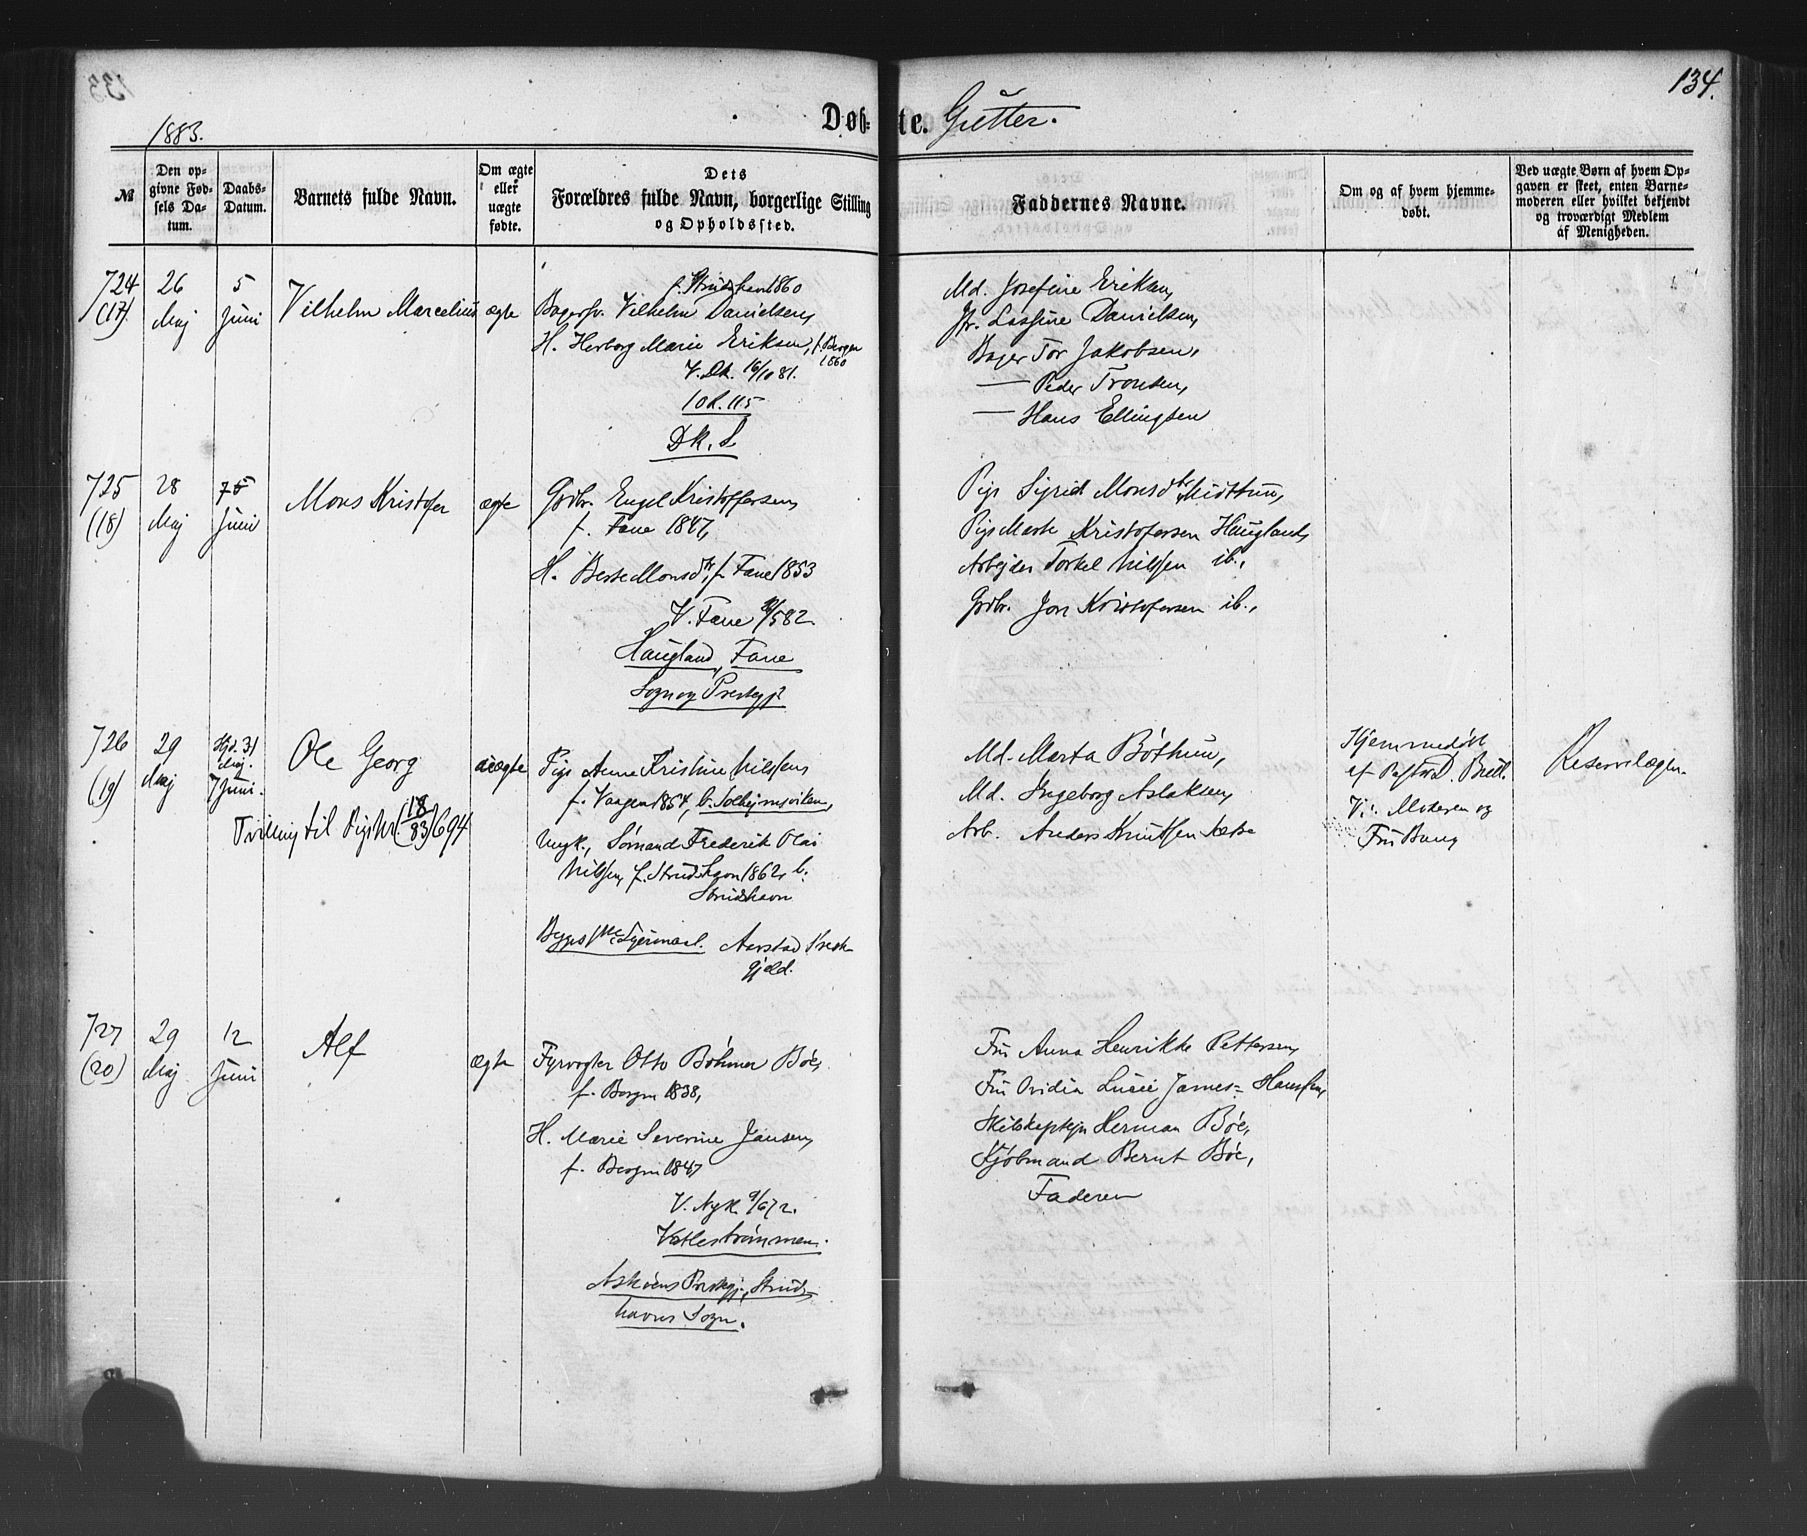 134.
1883.
Døb- te. Gutter.
№
Den op-
givne Fød-
sels Da-
tum.
Daabs-
Datum.
Barnets fulde Navn.
Om ægte
eller
uægte
fødte.
Dets
Forældres fulde Navn, borgerlige Stilling
og Opholdssted.
Faddernes Navne.
Om og af hvem hjemme-
døbt.
Ved uægte Børn af hvem Op-
gaven er skeet, enten Barne-
moderen eller hvilket bekjendt
og troværdigt Medlem
af Menigheden.
724
(17)
26
Maj
5
Juni
Vilhelm Marcelius
ægte
f. Strudshavn 1860
Bagersv. Vilhelm Danielsen,
H. Herborg Marie Eriksen, f. Bergen
1860
V. Dk. 16/10 81.
10 R. 115
Dk. S.
Md. Josefine Eriksen,
Jfr. Danielsen,
Bager Tor Jakobsen,
— Peder Tronsen,
— Hans Ellingsen
725
(18)
28
Maj
Juni
Mons Kristofer
ægte
Grdbr. Engel Kristoffersen,
f. Fane 1847,
H. Monsdtr, f. Fane 1853
V. Fane /5 82.
Haugland, Fane
Sogn og Prestegj.
Pige Sigrid Monsdtr Midttun,
Pige Marte Kristofersen Haugland,
Arbejder Torkel Nilssen ib.,
Grdbr. Jon Kristofersen ib.,
726
(19)
29
Maj
Hjd. 31
Maj.
7 Juni.
Ole Georg
uægte
Tvilling til Pige Nr. (18/83) 694
Pige Anne Kristine Nilssen
f. Vaagen 1854, b. Solheimsviken,
Ungk., Sømand Frederik Olai
Nilssen, f. Strudshavn 1862, b.
Strudshavn
Begges 1ste Lejermaal. Aarstad Prest-
gjeld.
Md. Marta Bøthun,
Md. Ingeborg Aslaksen,
Arb. Anders Knutsen
Hjemmedøbt
af Pastor D.
V: Moderen og
Fru Bang
Reservelægen.
727
(20)
29
Maj
12
Juni
Alf
ægte
Fyrvogter Otto Bøhmer Bøe,
f. Bergen 1838,
H. Marie Severine Jansen,
f. Bergen 1847
V. Nyk. 9/6 72.
Vatlestrømmen.
Askøens Prestegj., Struds-
havns Sogn.
Fru Anna Henrikke Pettersen,
Fru Ovidia Lucie James- Hanssen,
Skibskaptejn Herman Bøe,
Kjøbmand Bernt Bøe,
Faderen